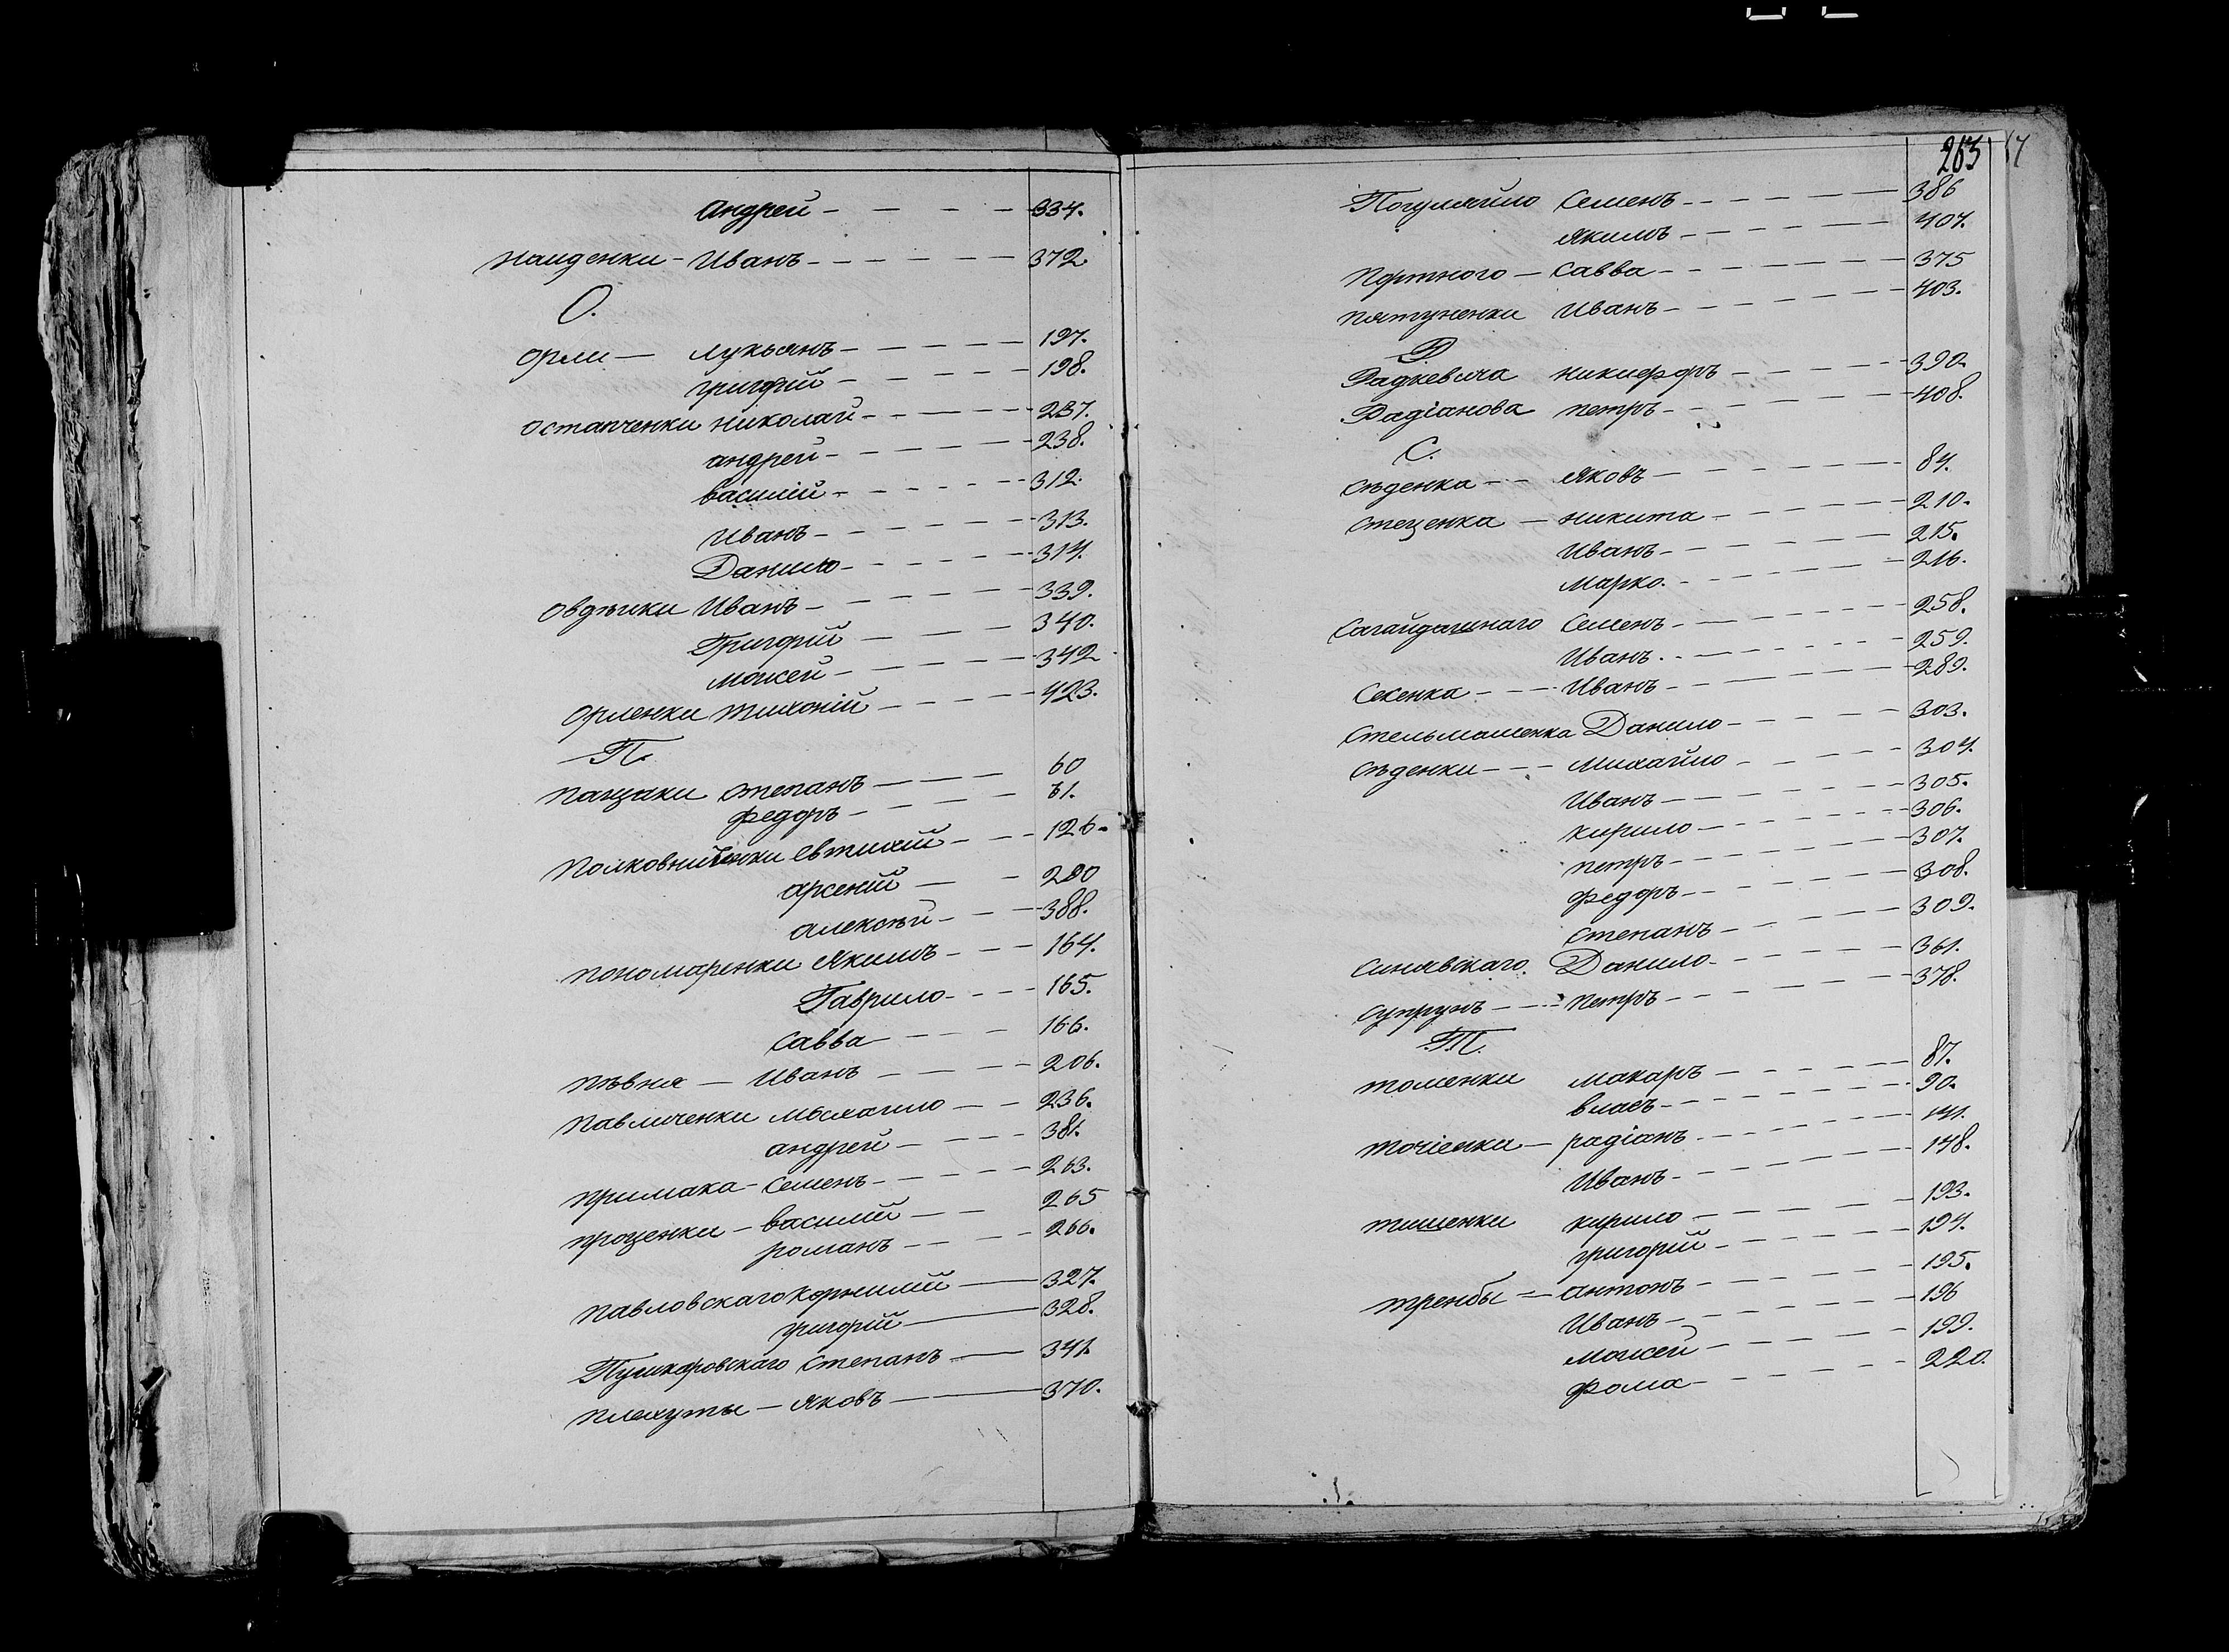 Андрей - - - - 334.
Наиденки - Иванъ - - - - 372.
О.
Орли — Лукьянъ - - - - 197.
Григорій - - - - 198.
Остапченки Николай - - - - 237.
Андрей - - - - 238.
Василій - - - - 312.
Иванъ - - - - 313.
Данило - - - - 314.
Овдѣики Иванъ - - - - 339.
Григорій - - - - 340.
Моисей - - - - 342
Орленки Тихоній - - - - 423.
П.
Пащаки Степанъ - - - 60
Федоръ - - - - 61.
Полковниченки Евтихій - - - 126.
Арсеній - - 200
Алексѣй - - - 388.
Пономаренки Якимъ - - - 164.
Гаврило - - - 165.
Савва - - - 166.
Пѣвня — Иванъ - - - - 206.
Павличенки Михаило - - 236.
Андрей - - - - 381.
Примака - Семенъ - - - - 263.
Проценки - Василій - - 265
Романъ - - - - 266.
Павловскаго Корнилій — 327.
Григорій — 328.
Пушкаровскаго Степанъ — 341.
Плахуты — Яковъ — 370.
263
17
Погуляйло Семенъ - - - - 386
Якимъ - - - - 407.
Портного — Савва - - - - 375
Пятуненки Иванъ - - - - 403.
Р
Радкевича Никифоръ - - - - 390.
Радіанова Петръ - - - - 408.
С.
Сѣденка - - Яковъ - - - - 84.
Стеценка — Никита - - - - 210.
Иванъ - - - - 215.
Марко - - - - 216.
Сагайдашнаго Семенъ - - - - 258.
Иванъ - - - - 259.
Секенка - - - Иванъ - - - - 289.
Стельмашенка Данило - - - - 303.
Сѣденки - - - Михайло - - - - 304.
Иванъ - - - - 305.
Кирило - - - - 306.
Петръ - - - - 307.
Федоръ - - - - 308.
Степанъ - - - - 309.
Синявскаго Данило - - - - 361.
Супрунъ - - - Петръ - - - - 378.
Т.
Томенки Макаръ - - - - 87.
Власъ - - - - 90.
Точіенки — Радіанъ - - - - 141.
Иванъ - - - - 148.
Тишенки Кирило - - - - 193.
Григорій - - - - 194.
Тренбы — Антонъ - - - - 195.
Иванъ - - - - 196
Моисей - - - - 199.
Фома - - - - 220.